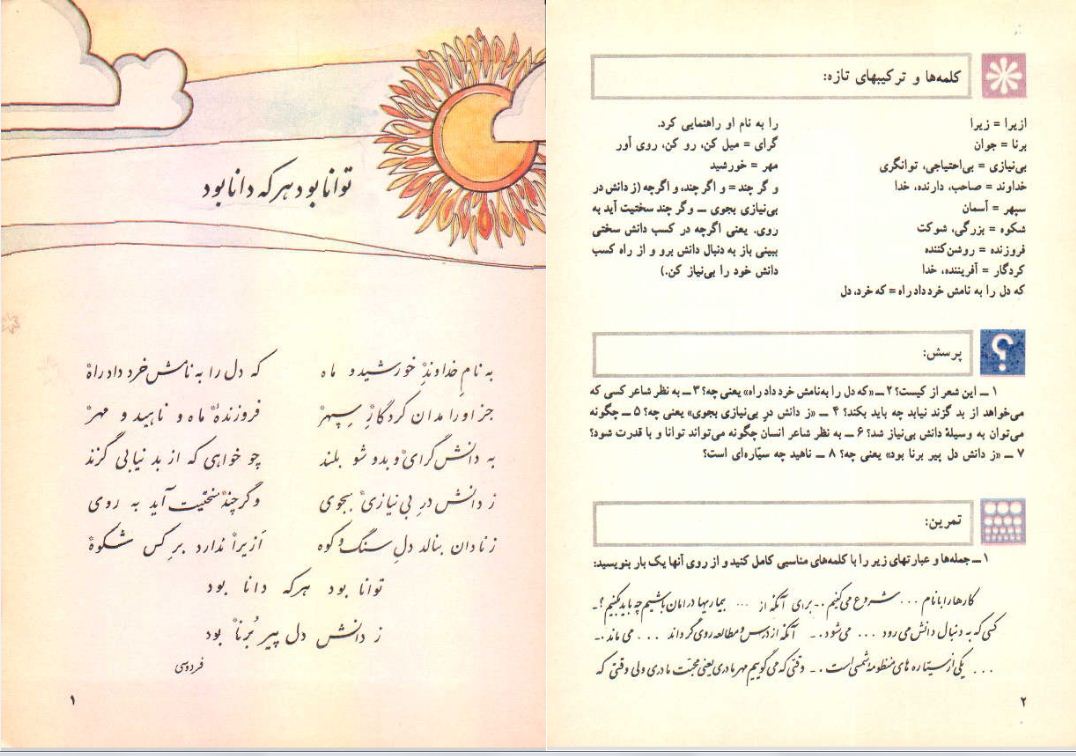 توانا بود هر که دانا بود
به نام خداوند خورشید و ماه که دل را به نامش خرد داد راه
جز او را مدان کردگار سپهر فروزندهٔ ماه و ناهید و مهر
به دانش گرای و بدو شو بلند چو خواهی که از بد نیابی گزند
ز دانش در بی نیازی بجوی وگر چند سختیت آید به روی
ز نادان بنالد دل سنگ و کوه ازیرا ندارد بر کس شکوه
توانا بود هر که دانا بود
ز دانش دل پیر بُرنا بود
فردوسی
۱
کلمه‌ها و ترکیبهای تازه:
ازیرا = زیرا
برنا = جوان
بی‌نیازی = بی‌احتیاجی، توانگری
خداوند = صاحب، دارنده، خدا
سپهر = آسمان
شکوه = بزرگی، شوکت
فروزنده = روشن‌کننده
کردگار = آفریننده، خدا
که دل را به نامش خرد داد راه = که خرد، دل
را به نام او راهنمایی کرد.
گرای = میل کن، رو کن، روی آور
مهر = خورشید
و گر چند = و اگر چند، و اگرچه (ز دانش در
بی‌نیازی بجوی ــ وگر چند سختیت آید به
روی. یعنی اگرچه در کسب دانش سختی
ببینی باز به دنبال دانش برو و از راه کسب
دانش خود را بی‌نیاز کن.)
؟
پرسش:
۱ ــ این شعر از کیست؟ ۲ ــ «که دل را به‌نامش خرد داد راه» یعنی چه؟ ۳ ــ به نظر شاعر کسی که
می‌خواهد از بد گزند نیابد چه باید بکند؟ ۴ ــ «ز دانش درِ بی‌نیازی بجوی» یعنی چه؟ ۵ ــ چگونه
می‌توان به وسیلهٔ دانش بی‌نیاز شد؟ ۶ ــ به نظر شاعر انسان چگونه می‌تواند توانا و با قدرت شود؟
۷ ــ «ز دانش دل پیر برنا بود» یعنی چه؟ ۸ ــ ناهید چه سیّاره‌ای است؟
تمرین:
۱ ــ جمله‌ها و عبارتهای زیر را با کلمه‌های مناسبی کامل کنید و از روی آنها یک بار بنویسید:
کارها را با نام ... شروع می‌کنیم .ــ برای آنکه از ... بیماریها در امان باشیم چه باید بکنیم؟ ــ
کسی که به دنبال دانش می‌رود ... می‌شود .ــ آنکه از درس و مطالعه روی گرداند ... می‌ماند .ــ
... یکی از ستاره های منظومه شمسی است .ــ وقتی که می‌گوییم مهر مادری یعنی محبّت مادری ولی وقتی که
۲